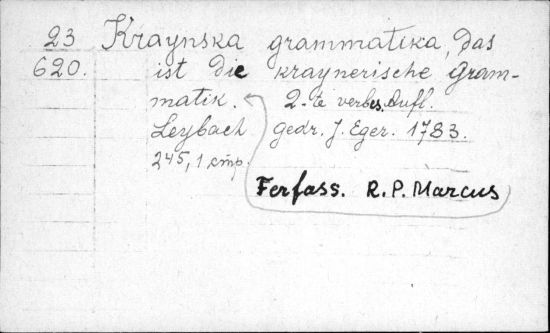 23 Kraynska grammatika, das
620. ist die kraynerische Gram-
matik. 2-te verbes. Aufl.
Leybach gedr. J. Eger. 1783.
245, 1 стр.
Ferfass. R. P. Marcus